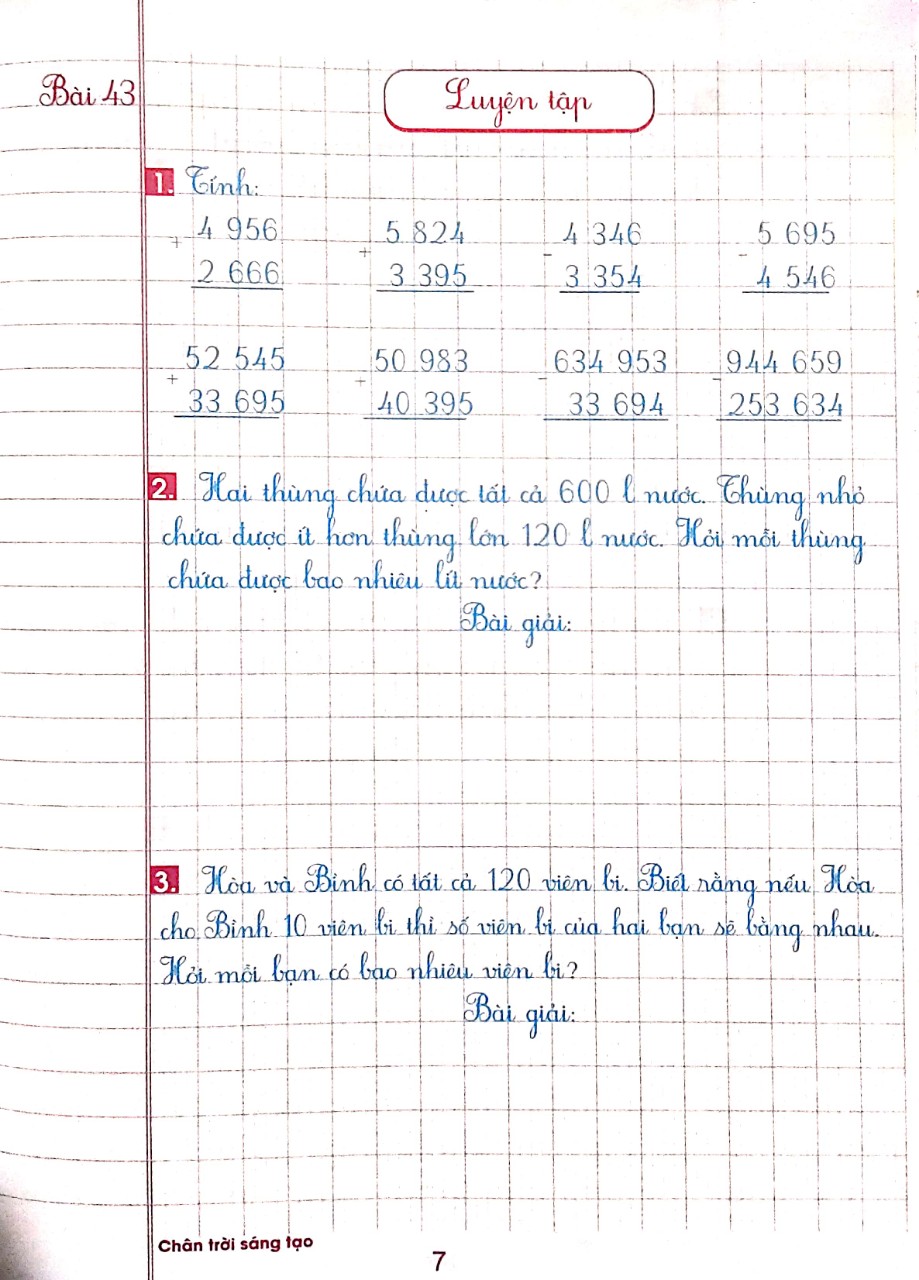 Bài 43
Luyện tập
1. Tính:
4 956 5 824 4 346 5 695
+ + - -
2 666 3 395 3 354 4 546
52 545 50 983 634 953 944 659
+ + - -
33 695 40 395 33 694 253 634
2. Hai thùng chứa được tất cả 600 l nước. Thùng nhỏ
chứa được ít hơn thùng lớn 120 l nước. Hỏi mỗi thùng
chứa được bao nhiêu lít nước?
Bài giải:
3. Hòa và Bình có tất cả 120 viên bi. Biết rằng nếu Hòa
cho Bình 10 viên bi thì số viên bi của hai bạn sẽ bằng nhau.
Hỏi mỗi bạn có bao nhiêu viên bi?
Bài giải:
Chân trời sáng tạo
7